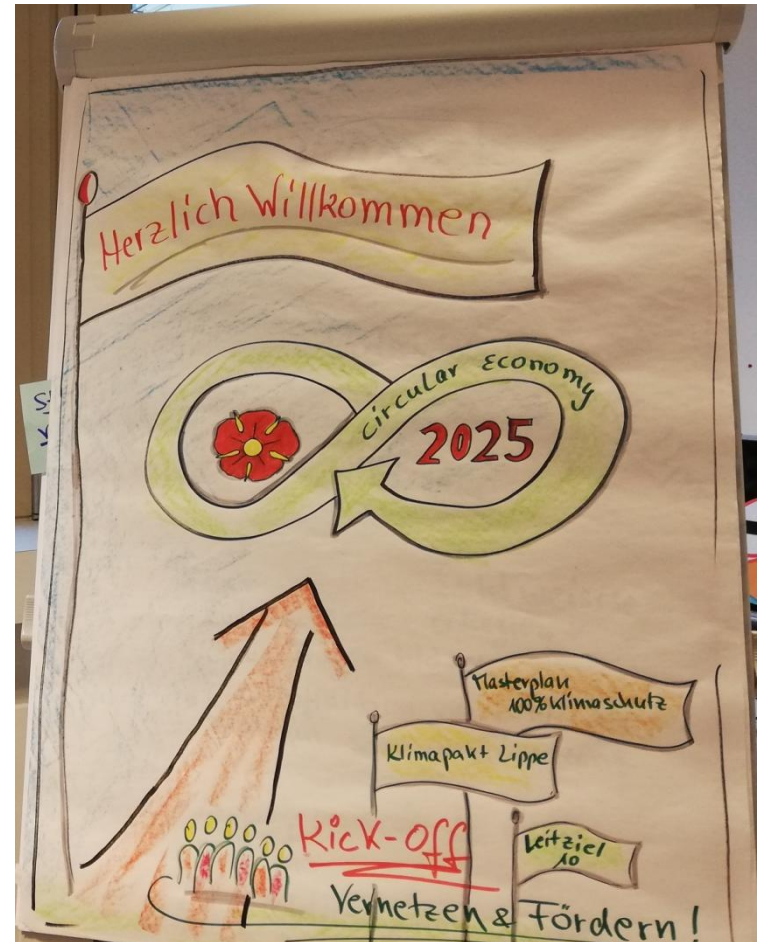 Herzlich Willkommen
circular Economy
2025
Masterplan
100% Klimaschutz
Klimapakt Lippe
Leitziel
10
Kick-off
Vernetzen & Fördern!